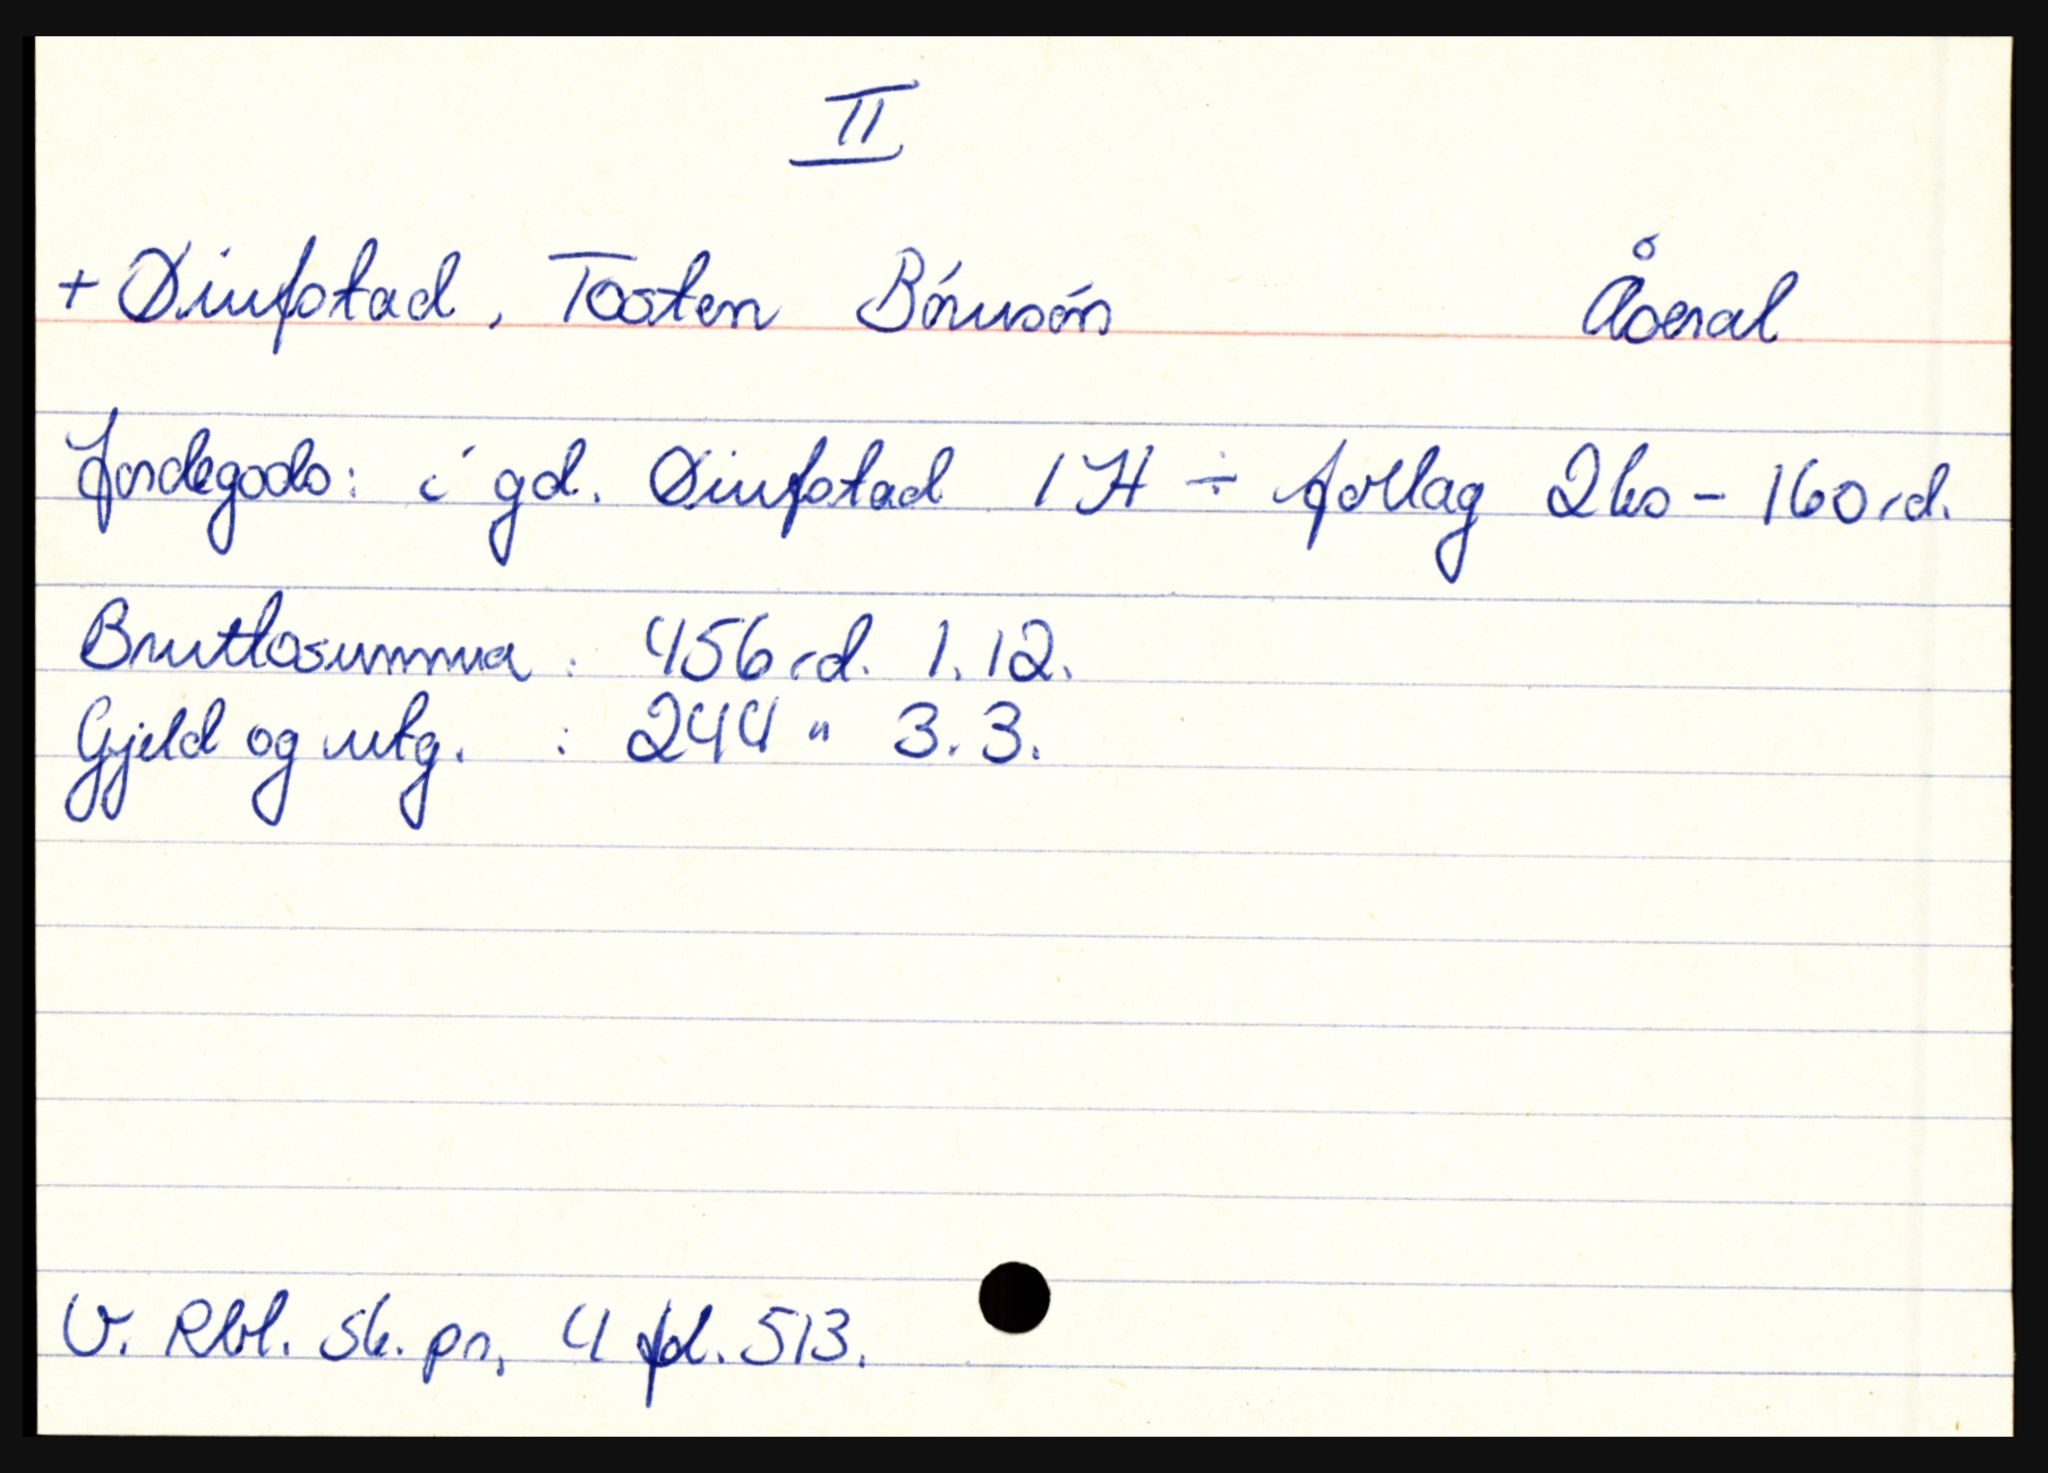 II
+ Øinfstad, Tosten Börusön Åseral
Jordegods: i gd. Øinfstad 1 H ÷ forllag 2 ks - 160 rd.
Bruttosumma : 456 rd. 1. 12.
Gjeld og utg. : 244 " 3. 3.
V. Rbl. Sk. pr. 4 fol. 513.